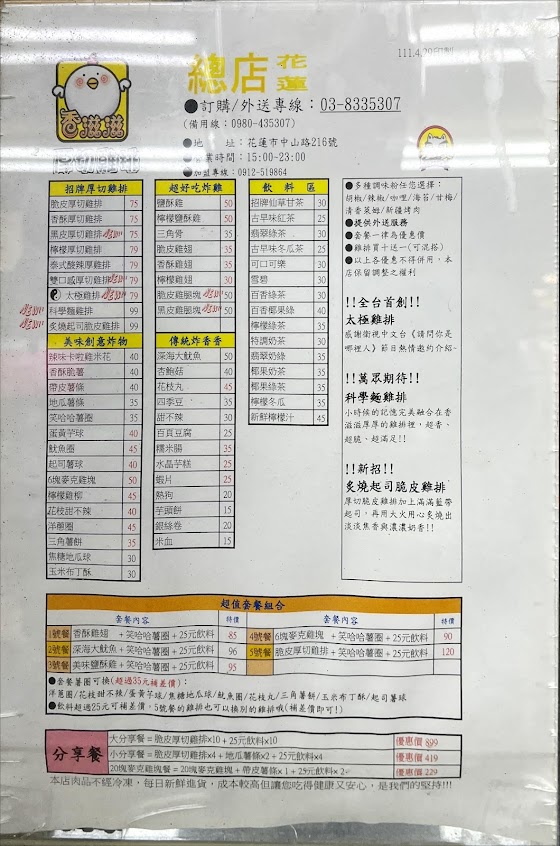 總店 花蓮
111.4.20印製
香滋滋
●訂購/外送專線：03-8335307
(備用線：0980-435307)
●地 址：花蓮市中山路216號
業時間：15:00-23:00
●加盟專線：0912-519864
招牌厚切雞排
脆皮厚切雞排 75
香酥厚切雞排 75
黑皮厚切雞排 75
檸檬厚切雞排 79
泰式酸辣厚雞排 79
雙口感厚切雞排 79
太極雞排 79
科學麵雞排 99
炙燒起司脆皮雞排 99
美味創意炸物
辣味卡啦雞米花 40
香酥脆薯 40
帶皮薯條 40
地瓜薯條 35
笑哈哈薯圈 35
蛋黃芋球 40
魷魚圈 45
起司薯球 40
6塊麥克雞塊 50
檸檬雞柳 45
花枝甜不辣 40
洋蔥圈 45
三角薯餅 35
焦糖地瓜球 30
玉米布丁酥 30
超好吃炸雞
鹽酥雞 50
檸檬鹽酥雞 50
三角骨 35
脆皮雞翅 35
香酥雞翅 35
檸檬雞翅 30
脆皮雞腿塊 50
黑皮雞腿塊 50
傳統炸香香
深海大魷魚 50
杏鮑菇 40
花枝丸 45
四季豆 35
甜不辣 30
百頁豆腐 25
糯米腸 35
水晶芋糕 25
蝦片 25
熱狗 20
芋頭餅 15
銀絲卷 20
米血 15
飲料區
招牌仙草甘茶 30
古早味紅茶 25
翡翠綠茶 30
古早味冬瓜茶 25
可口可樂 30
雪碧 30
百香綠茶 30
百香椰果綠 40
檸檬綠茶 35
特調奶茶 30
翡翠奶綠 35
椰果奶茶 35
椰果綠茶 35
檸檬冬瓜 35
新鮮檸檬汁 45
●多種調味粉任您選擇：
胡椒/辣椒/咖哩/海苔/甘梅/
清香萊姆/新疆烤肉
●提供外送服務
●套餐一律為優惠價
●雞排買十送一(可混搭)
●以上各優惠不得併用，本
店保留調整之權利
!!全台首創!!
太極雞排
感謝衛視中文台《請問你是
哪裡人》節目熱情邀約介紹。
!!萬眾期待!!
科學麵雞排
小時候的記憶完美融合在香
滋滋厚厚的雞排裡，超香、
超脆、超滿足!!
!!新招!!
炙燒起司脆皮雞排
厚切脆皮雞排加上滿滿藍帶
起司，再用大火用心炙燒出
淡淡焦香與濃濃奶香!!
超值套餐組合
套餐內容 特價 套餐內容 特價
1號餐 香酥雞翅 +笑哈哈薯圈+25元飲料 85 4號餐 6塊麥克雞塊 +笑哈哈薯圈+25元飲料 90
2號餐 深海大魷魚+笑哈哈薯圈+25元飲料 96 5號餐 脆皮厚切雞排+笑哈哈薯圈+25元飲料 120
3號餐 美味鹽酥雞+笑哈哈薯圈+25元飲料 95
●套餐薯圈可換(超過35元補差價)：
洋蔥圈/花枝甜不辣/蛋黃芋球/焦糖地瓜球/魷魚圈/花枝丸/三角薯餅/玉米布丁酥/起司薯球
●飲料超過25元可補差價，5號餐的雞排也可以換別的雞排哦(補差價即可!)
分享餐
大分享餐=脆皮厚切雞排×10+25元飲料×10 優惠價 899
小分享餐=脆皮厚切雞排×4+地瓜薯條×2+25元飲料×4 優惠價 419
20塊麥克雞塊餐=20塊麥克雞塊+帶皮薯條×1+25元飲料×2 優惠價 229
本店肉品不經冷凍，每日新鮮進貨，成本較高但讓您吃得健康又安心，是我們的堅持!!!